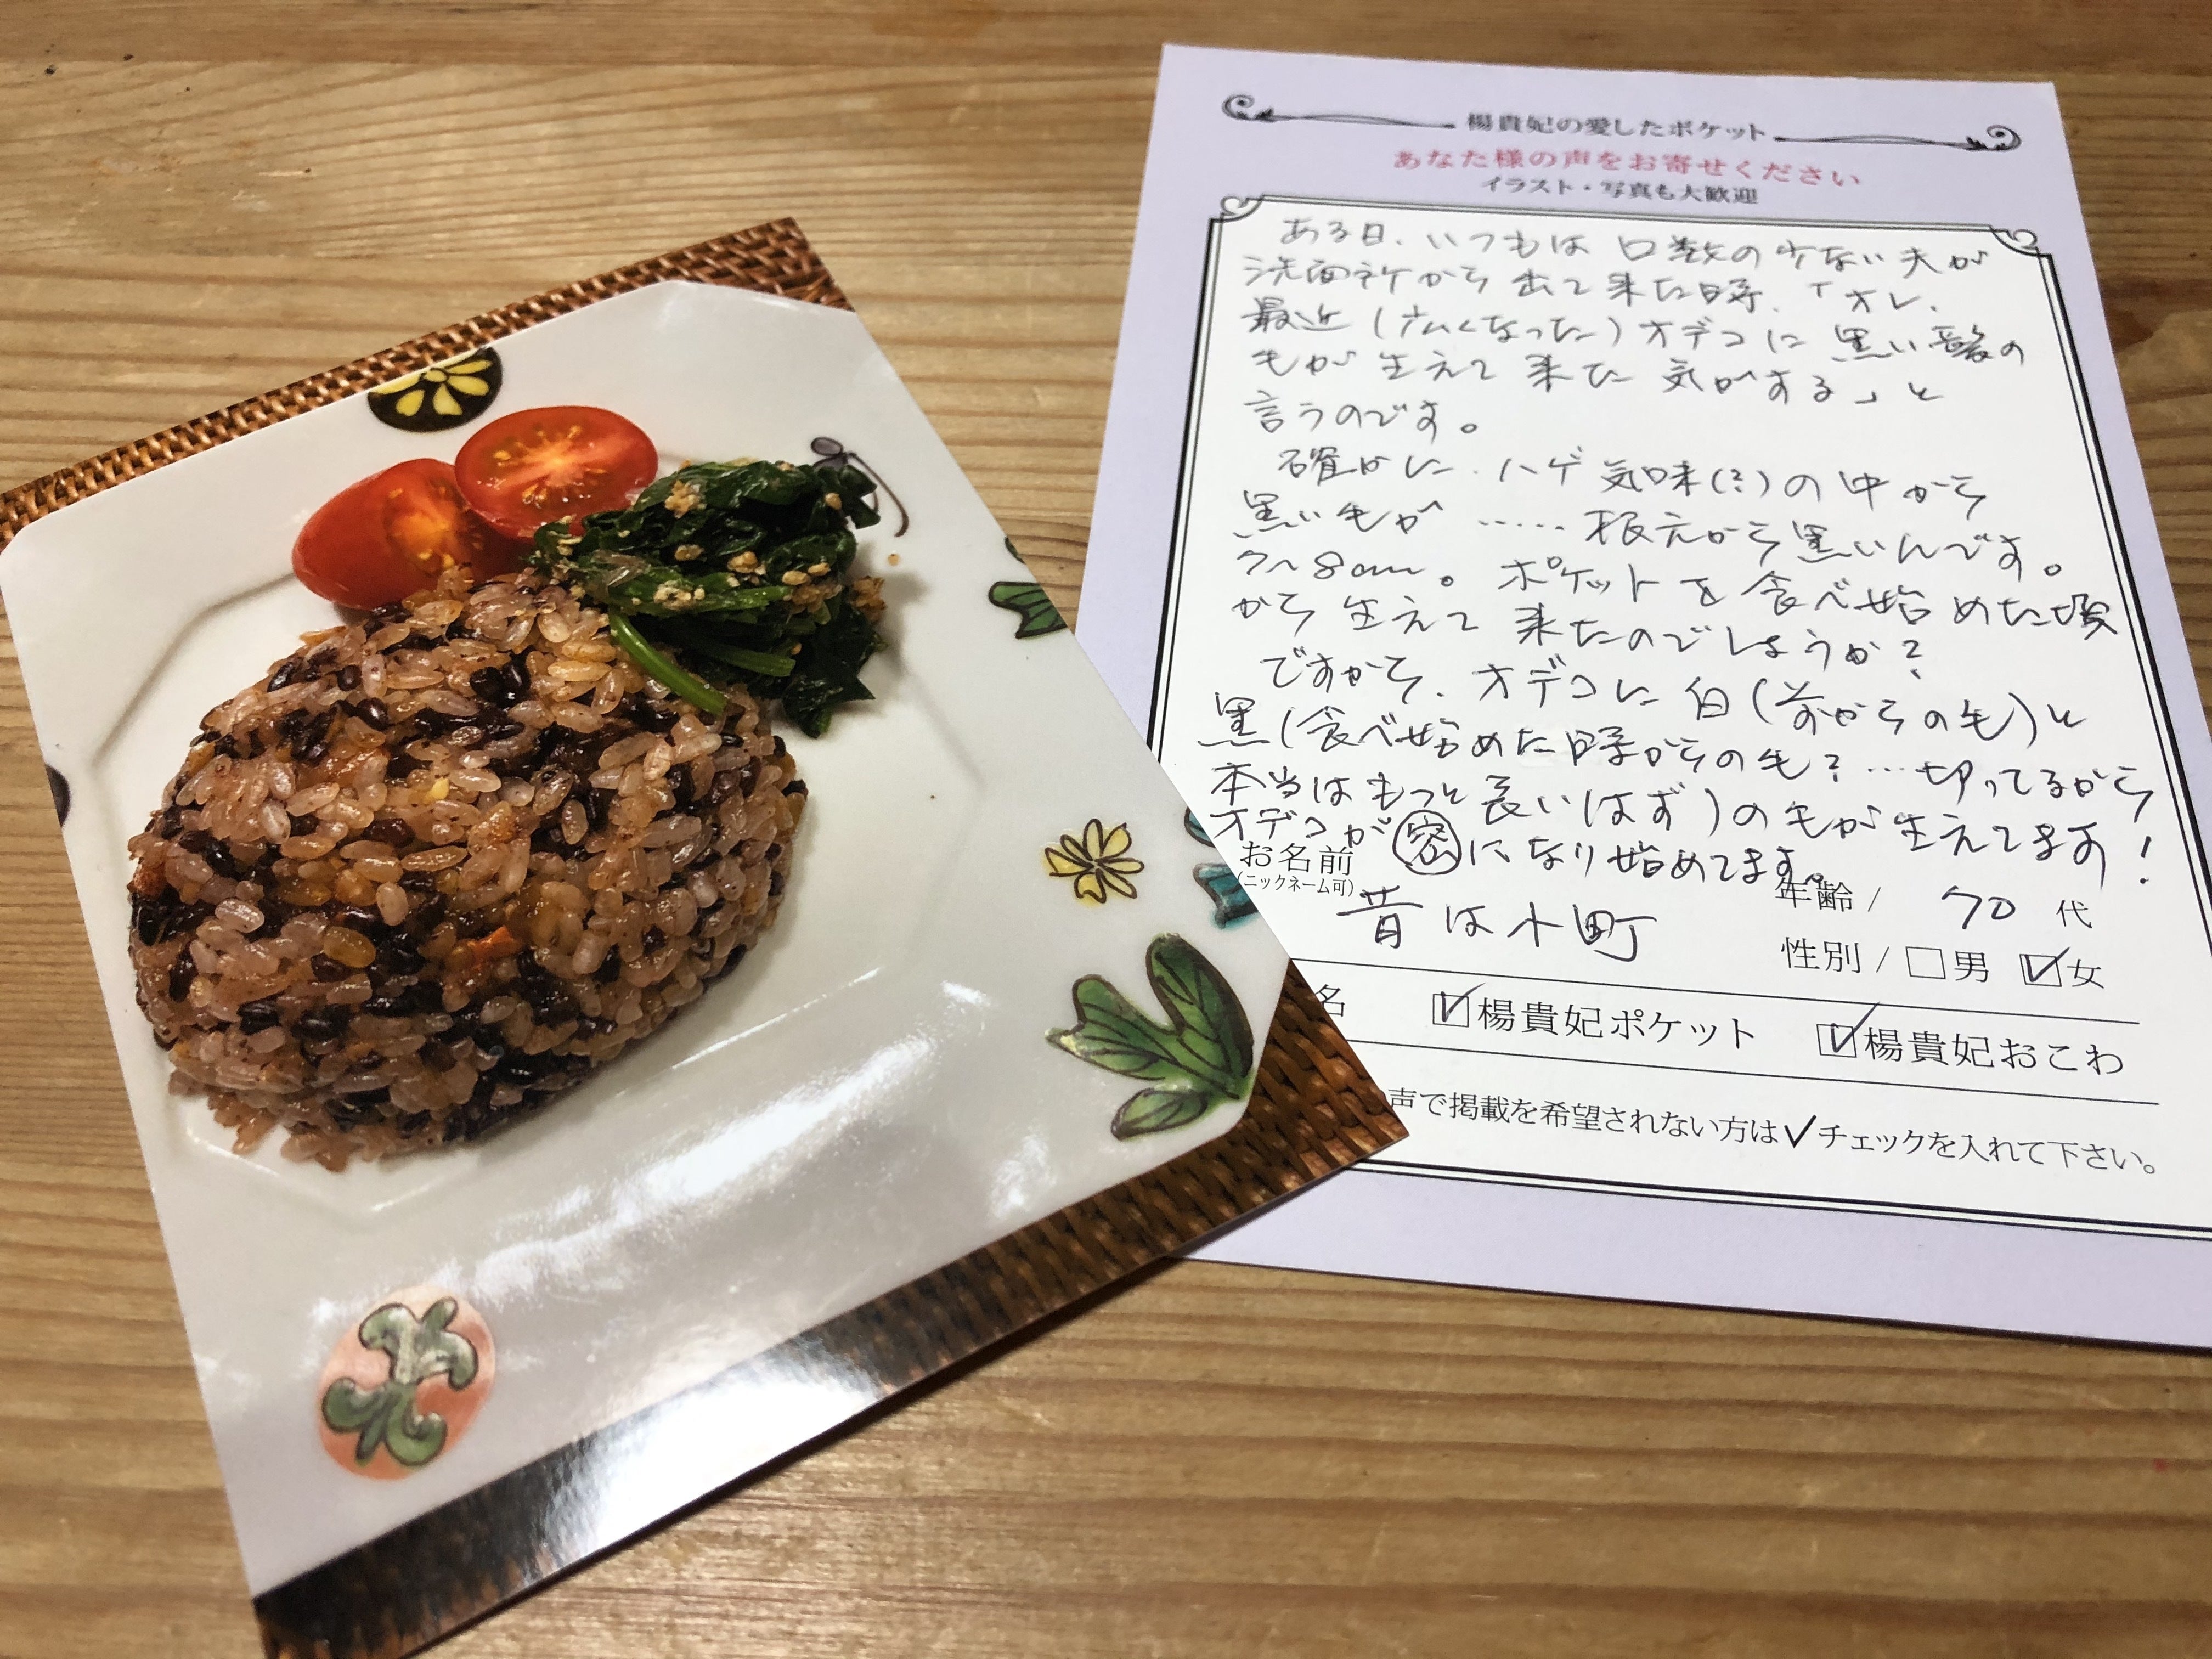 楊貴妃の愛したポケット
あなた様の声をお寄せください
イラスト・写真も大歓迎
ある日、いつもは口数の少ない夫が
洗面所から出て来た時、「オレ、
最近(広くなった)オデコに黒い髪の
毛が生えて来た気がする」と
言うのです。
確かに、ハゲ気味(?)の中から
黒い毛が……根元から黒いんです。
7~8cm。ポケットを食べ始めた頃
から生えて来たのでしょうか?
ですから、オデコに白(前からの毛)と
黒(食べ始めた時からの毛?…切ってるから
本当はもっと長いはず)の毛が生えてます!
オデコが密になり始めてます。
お名前
(ニックネーム可)
昔は小町
年齢/ 70 代
性別/ □男 ☑女
名 ☑楊貴妃ポケット ☑楊貴妃おこわ
声で掲載を希望されない方は✓チェックを入れて下さい。